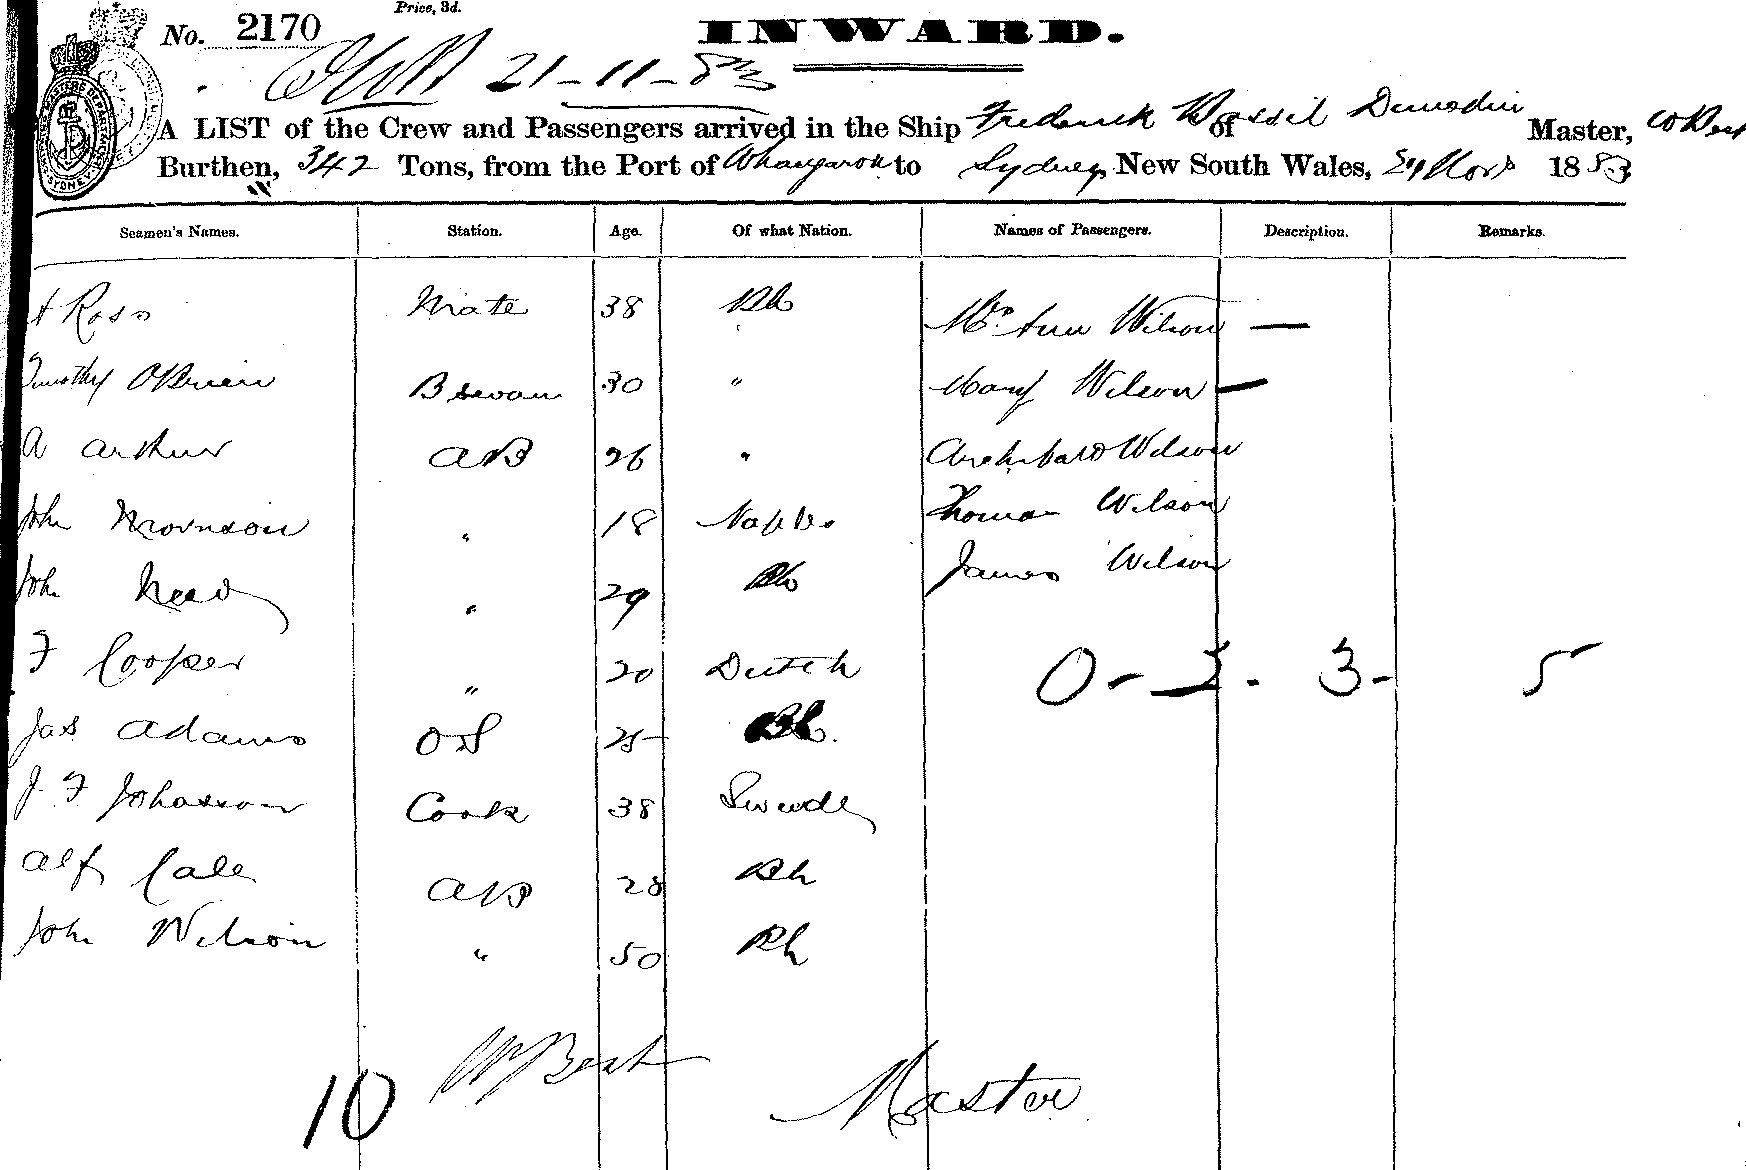 Price, 3d.
No. 2170
INWARD.
21-11-83
A LIST of the Crew and Passengers arrived in the Ship Frederick Bassil of Dunedin Master, W Best
Burthen, 342 Tons, from the Port of Whangaroa to Sydney New South Wales, 21 Novr 1883
Seamen's Names. Station. Age. Of what Nation. Names of Passengers. Description. Remarks.
A Ross Mate 38 Bh Mrs Ann Wilson —
Timothy OBrien Bsewan 30 " Mary Wilson —
A Arthur AB 26 " Archibald Wilson
John Morrison " 18 Naples Thomas Wilson
John Neady " 29 Bh James Wilson
F Cooper " 20 Dutch 0 - 2 - 3 - 5
Jas Adams OS 25 Bh.
J. F Johasson Cook 38 Swede
Alf Cale AB 28 Bh
John Wilson " 50 Bh
10 W Best Master